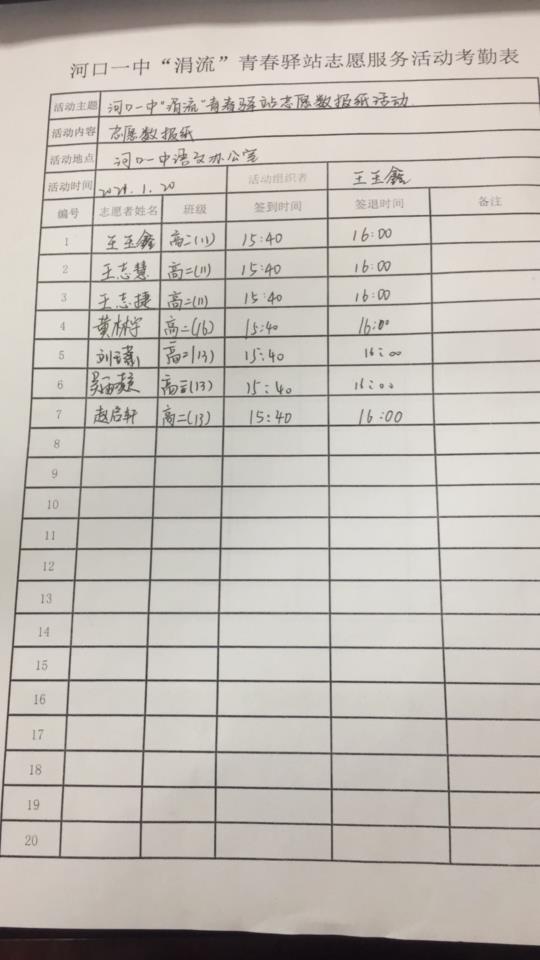 河口一中“涓流”青春驿站志愿服务活动考勤表
活动主题 河口一中“涓流”青春驿站志愿数报纸活动
活动内容 志愿数报纸
活动地点 河口一中语文办公室
活动时间 2024.1.20 活动组织者 王玉鑫
编号 志愿者姓名 班级 签到时间 签退时间 备注
1 王玉鑫 高二(11) 15:40 16:00
2 王志慧 高二(11) 15:40 16:00
3 王志捷 高二(11) 15:40 16:00
4 黄林宇 高二(16) 15:40 16:00
5 高二(13) 15:40 16:00
6 高二(13) 15:40 16:00
7 赵启轩 高二(13) 15:40 16:00
8
9
10
11
12
13
14
15
16
17
18
19
20